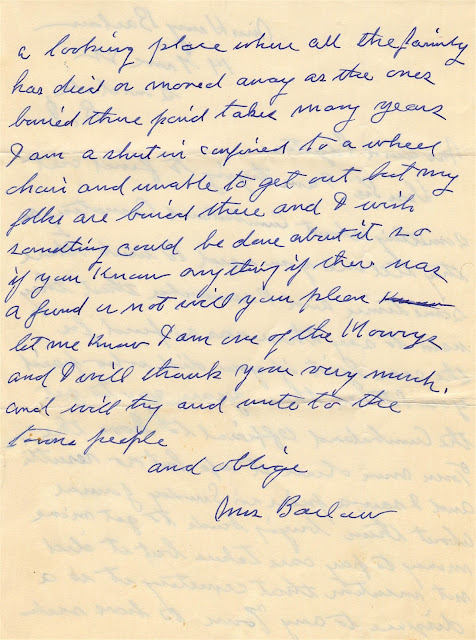 a looking place where all the family
has died or moved away as the ones
buried there paid takes many years
I am a shut in confined to a wheel
chair and unable to get out but my
folks are buried there and I wish
something could be done about it so
if you know anything if there was
a fund or not will you please know
let me know I am one of the Mowrys
and I will thank you very much.
and will try and write to the
towns people
and oblige
Mrs Barlow